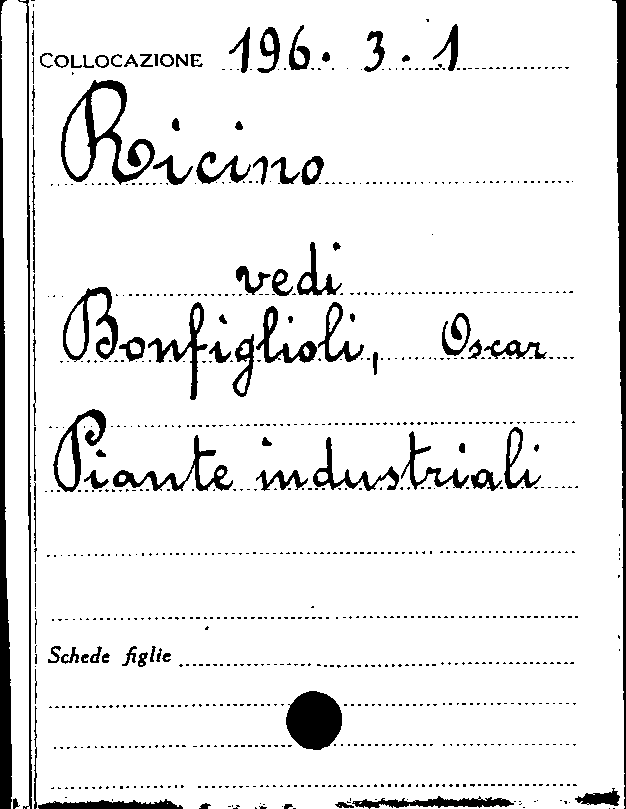 COLLOCAZIONE 196. 3. 1
Ricino
vedi
Bonfiglioli, Oscar
Piante industriali
Schede figlie